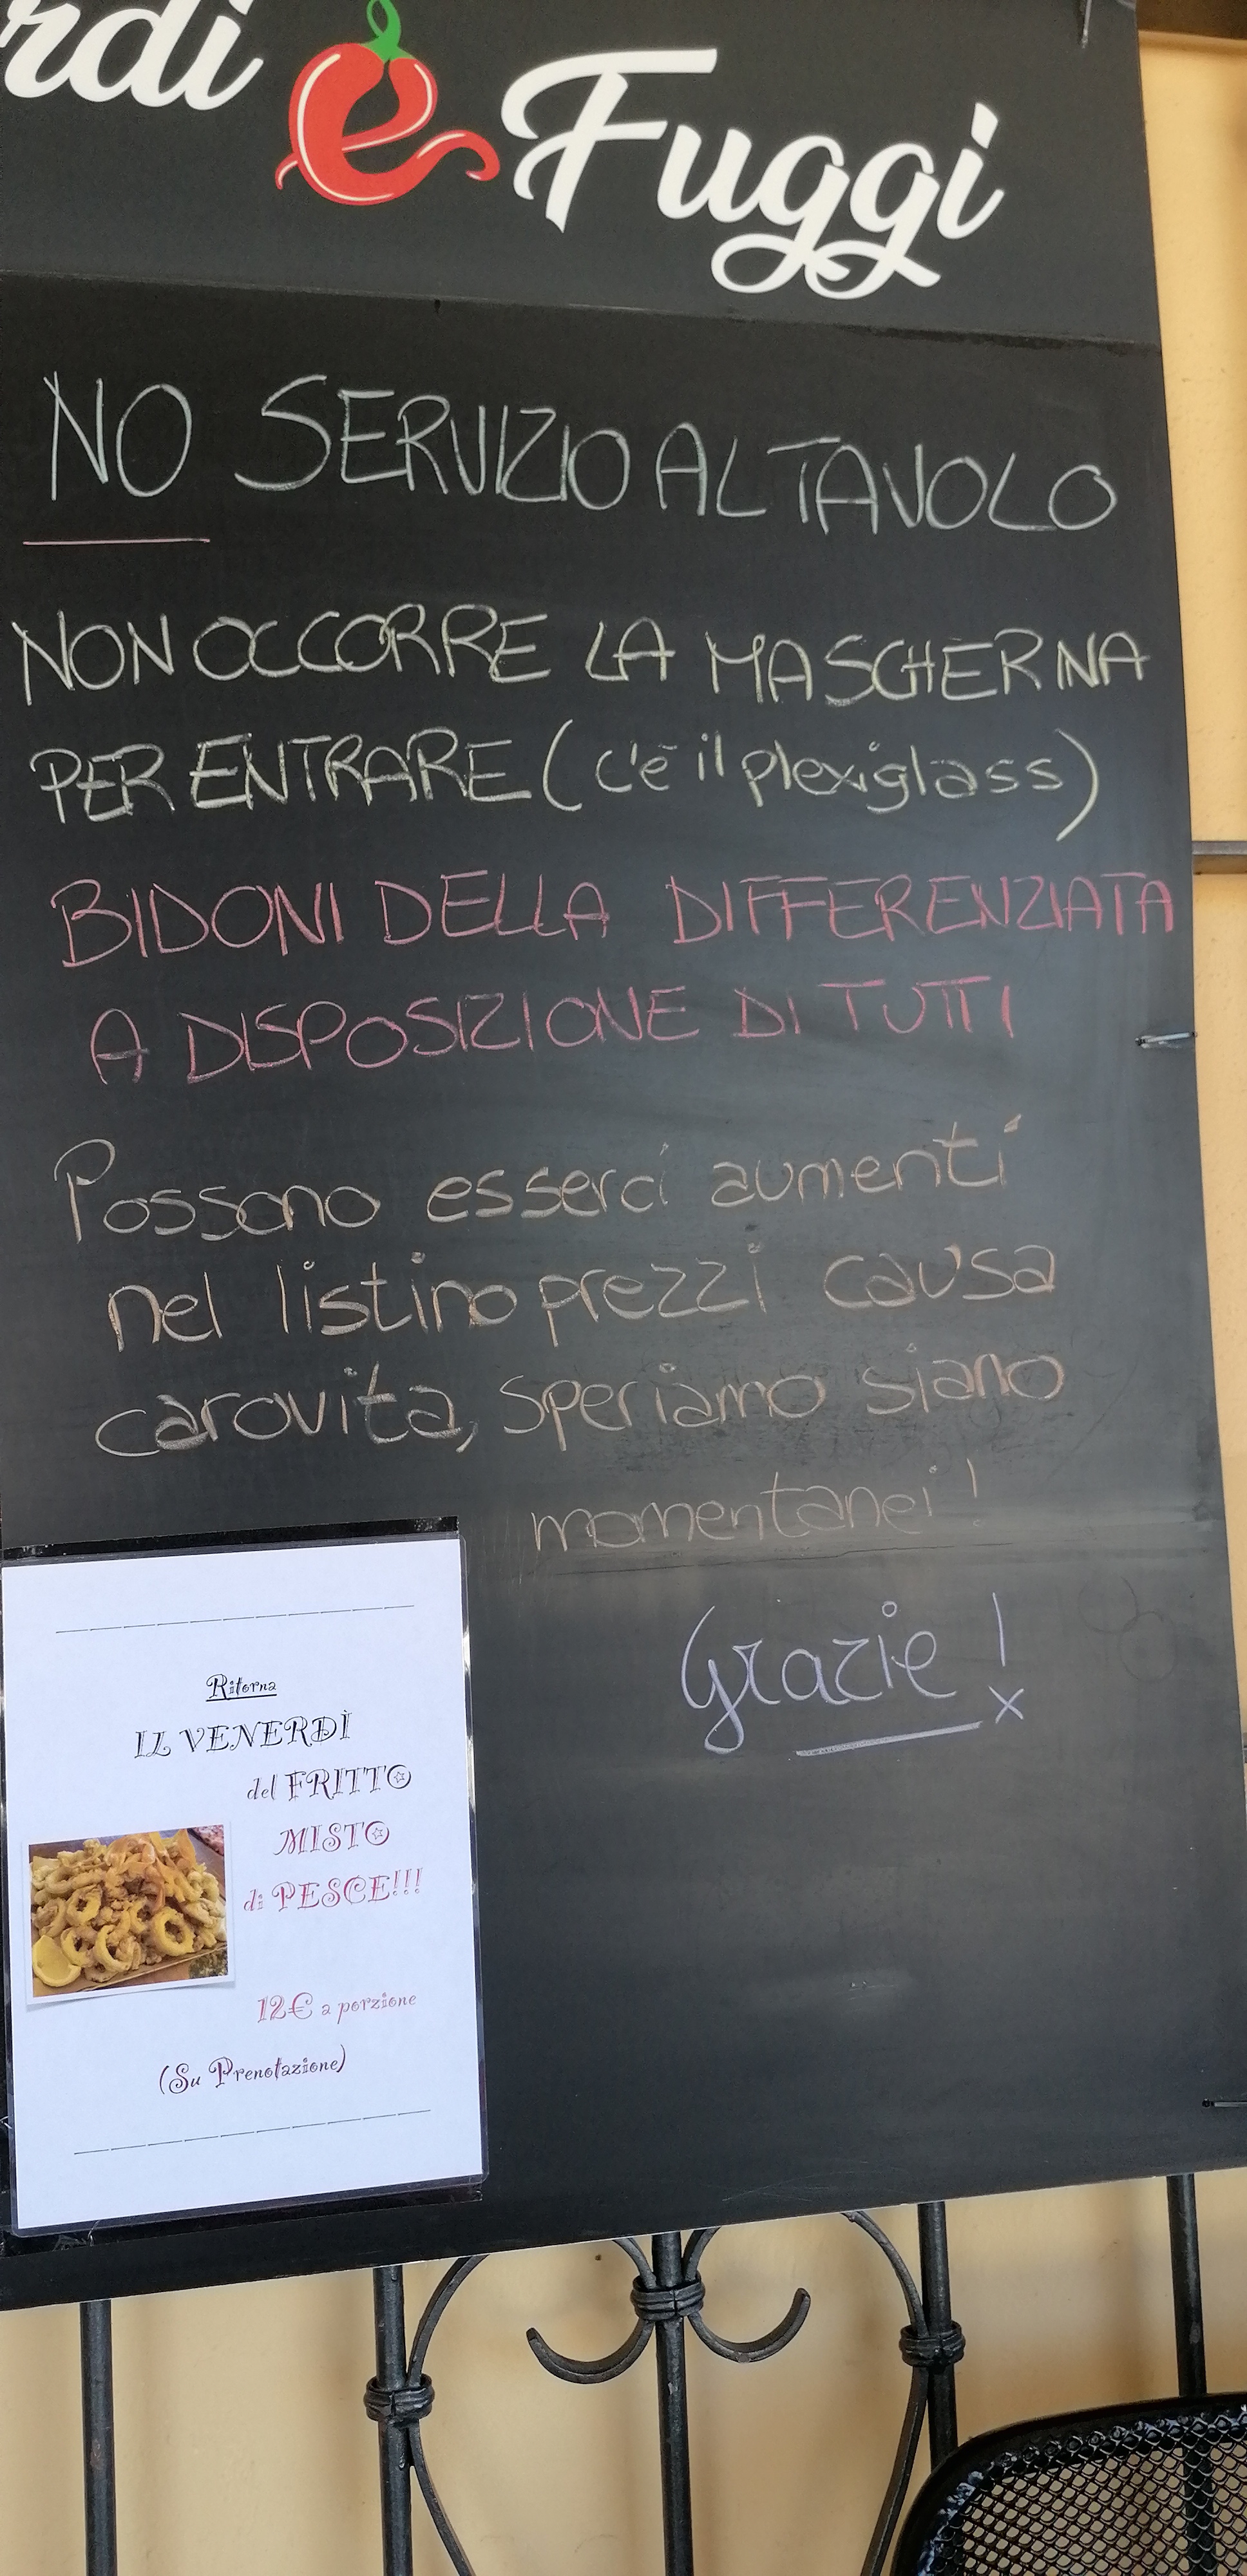 rdi e Fuggi
NO SERVIZIO AL TAVOLO
NON OCCORRE LA MASCHERNA
PER ENTRARE (c'è il plexiglass)
BIDONI DELLA DIFFERENZIATA
A DISPOSIZIONE DI TUTTI
Possono esserci aumenti
nel listino prezzi causa
carovita, speriamo siano
momentanei!
Grazie! x
Ritorna
IL VENERDÌ
del FRITTO
MISTO
di PESCE!!!
12€ a porzione
(Su Prenotazione)